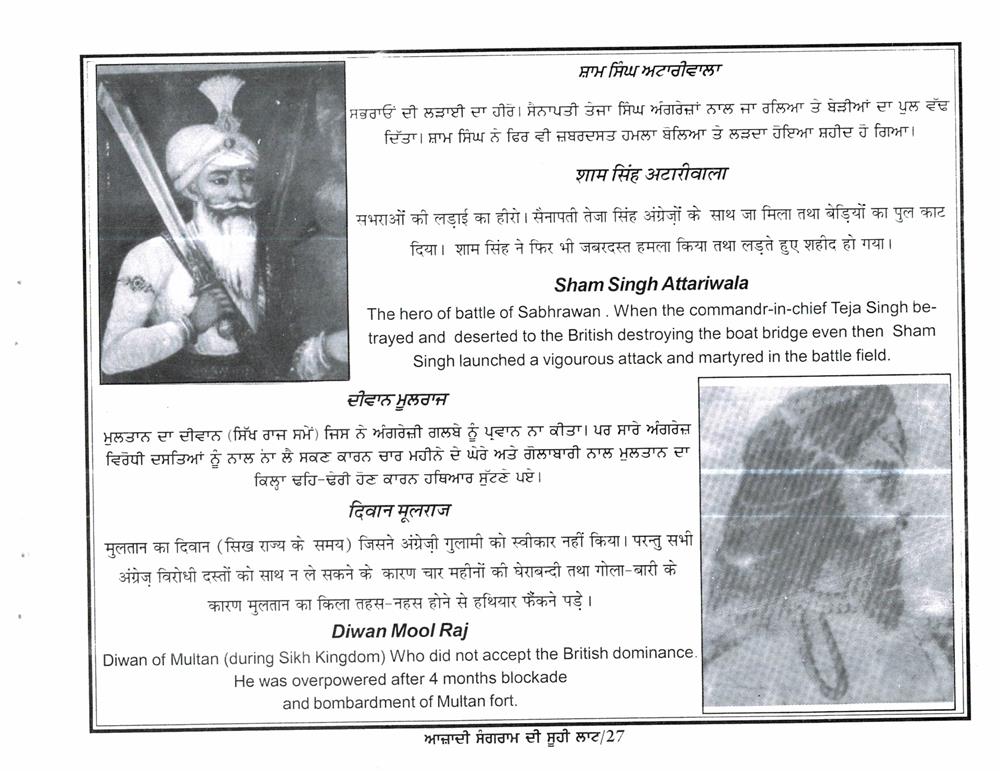 ਸ਼ਾਮ ਸਿੰਘ ਅਟਾਰੀਵਾਲਾ
ਸਭਰਾਓਂ ਦੀ ਲੜਾਈ ਦਾ ਹੀਰੋ। ਸੈਨਾਪਤੀ ਤੇਜਾ ਸਿੰਘ ਅੰਗਰੇਜ਼ਾਂ ਨਾਲ ਜਾ ਰਲਿਆ ਤੇ ਬੇੜੀਆਂ ਦਾ ਪੁਲ ਵੱਢ
ਦਿੱਤਾ। ਸ਼ਾਮ ਸਿੰਘ ਨੇ ਫਿਰ ਵੀ ਜ਼ਬਰਦਸਤ ਹਮਲਾ ਬੋਲਿਆ ਤੇ ਲੜਦਾ ਹੋਇਆ ਸ਼ਹੀਦ ਹੋ ਗਿਆ।
शाम सिंह अटारीवाला
सभराओं की लड़ाई का हीरो। सैनापती तेजा सिंह अंग्रेज़ों के साथ जा मिला तथा बेड़ियों का पुल काट
दिया। शाम सिंह ने फिर भी जबरदस्त हमला किया तथा लड़ते हुए शहीद हो गया।
Sham Singh Attariwala
The hero of battle of Sabhrawan . When the commandr-in-chief Teja Singh be-
trayed and deserted to the British destroying the boat bridge even then Sham
Singh launched a vigourous attack and martyred in the battle field.
ਦੀਵਾਨ ਮੂਲਰਾਜ
ਮੁਲਤਾਨ ਦਾ ਦੀਵਾਨ (ਸਿੱਖ ਰਾਜ ਸਮੇਂ) ਜਿਸ ਨੇ ਅੰਗਰੇਜ਼ੀ ਗਲਬੇ ਨੂੰ ਪ੍ਰਵਾਨ ਨਾ ਕੀਤਾ। ਪਰ ਸਾਰੇ ਅੰਗਰੇਜ਼
ਵਿਰੋਧੀ ਦਸਤਿਆਂ ਨੂੰ ਨਾਲ ਨਾਂ ਲੈ ਸਕਣ ਕਾਰਨ ਚਾਰ ਮਹੀਨੇ ਦੇ ਘੇਰੇ ਅਤੇ ਗੋਲਾਬਾਰੀ ਨਾਲ ਮੁਲਤਾਨ ਦਾ
ਕਿਲ੍ਹਾ ਢਹਿ-ਢੇਰੀ ਹੋਣ ਕਾਰਨ ਹਥਿਆਰ ਸੁੱਟਣੇ ਪਏ।
दिवान मूलराज
मुलतान का दिवान (सिख राज्य के समय) जिसने अंग्रेज़ी गुलामी को स्वीकार नहीं किया। परन्तु सभी
अंग्रेज़ विरोधी दस्तों को साथ न ले सकने के कारण चार महीनों की घेराबन्दी तथा गोला-बारी के
कारण मुलतान का किला तहस-नहस होने से हथियार फैंकने पड़े।
Diwan Mool Raj
Diwan of Multan (during Sikh Kingdom) Who did not accept the British dominance.
He was overpowered after 4 months blockade
and bombardment of Multan fort.
ਆਜ਼ਾਦੀ ਸੰਗਰਾਮ ਦੀ ਸੂਹੀ ਲਾਟ/27